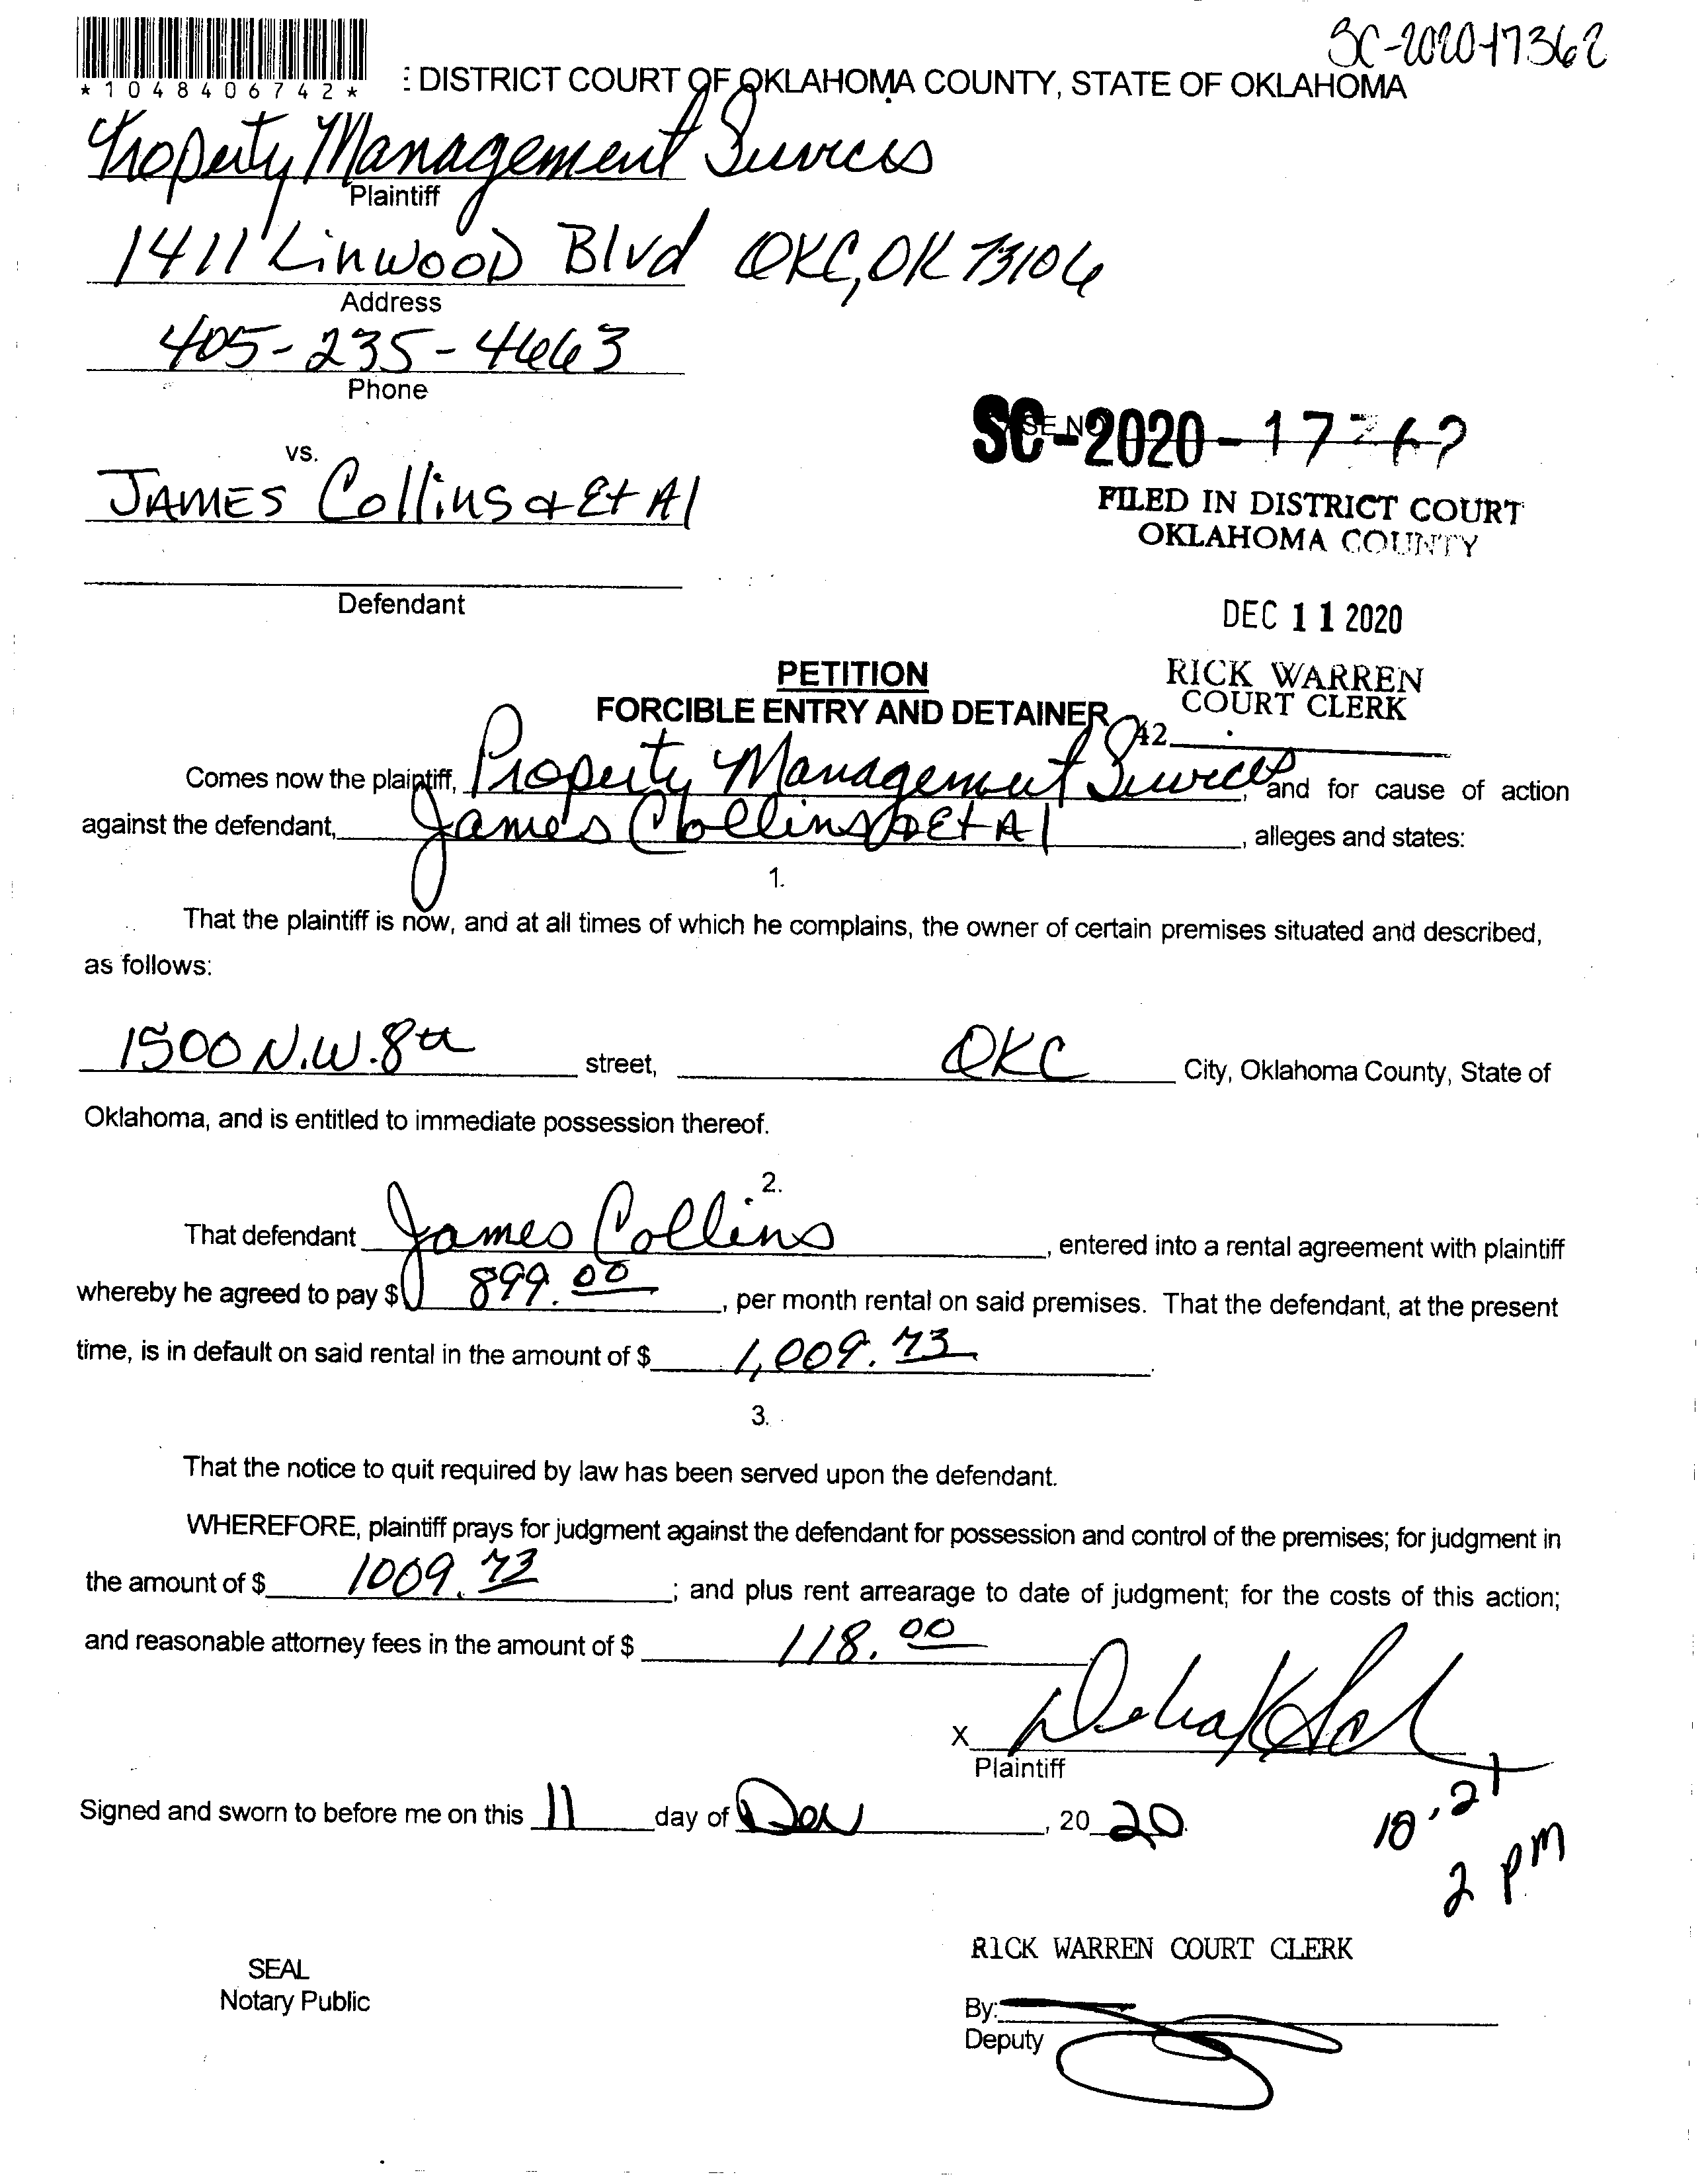 SC-2020-17362
*1048406742*
: DISTRICT COURT OF OKLAHOMA COUNTY, STATE OF OKLAHOMA
Property Management Services
Plaintiff
1411 Linwood Blvd OKC, OK 73106
Address
405-235-4663
Phone
SC-2020-17
vs.
JAMES Collins & Et Al
FILED IN DISTRICT COURT
OKLAHOMA COUNTY
Defendant
DEC 11 2020
PETITION
RICK WARREN
COURT CLERK
FORCIBLE ENTRY AND DETAINER
42
Comes now the plaintiff, Property Management Services, and for cause of action
against the defendant, James Collins & Et Al, alleges and states:
1.
That the plaintiff is now, and at all times of which he complains, the owner of certain premises situated and described,
as follows:
1500 N.W. 8th street, OKC City, Oklahoma County, State of
Oklahoma, and is entitled to immediate possession thereof.
2.
That defendant James Collins, entered into a rental agreement with plaintiff
whereby he agreed to pay $ 899.00, per month rental on said premises. That the defendant, at the present
time, is in default on said rental in the amount of $ 1,009.73.
3.
That the notice to quit required by law has been served upon the defendant.
WHEREFORE, plaintiff prays for judgment against the defendant for possession and control of the premises; for judgment in
the amount of $ 1009.73; and plus rent arrearage to date of judgment; for the costs of this action;
and reasonable attorney fees in the amount of $ 118.00
X
Plaintiff
Signed and sworn to before me on this 11 day of, 20 20.
2 PM
RICK WARREN COURT CLERK
SEAL
Notary Public
By:
Deputy